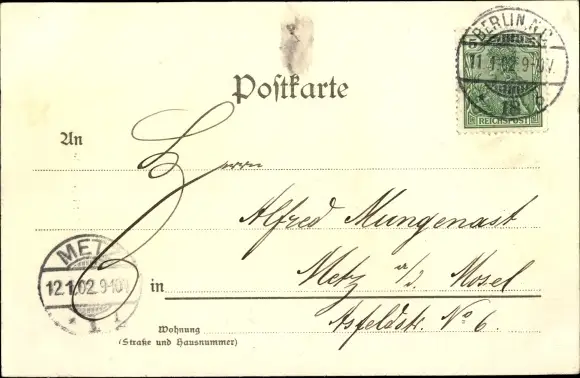 BERLIN. N.C.
11.1.02.9-10V.
REICHSPOST
Postkarte
An
Herrn
Alfred Mungenast
in Metz a/d. Mosel
METZ
12.1.02.9-10V
Asfeldstr. No 6.
Wohnung
(Straße und Hausnummer)